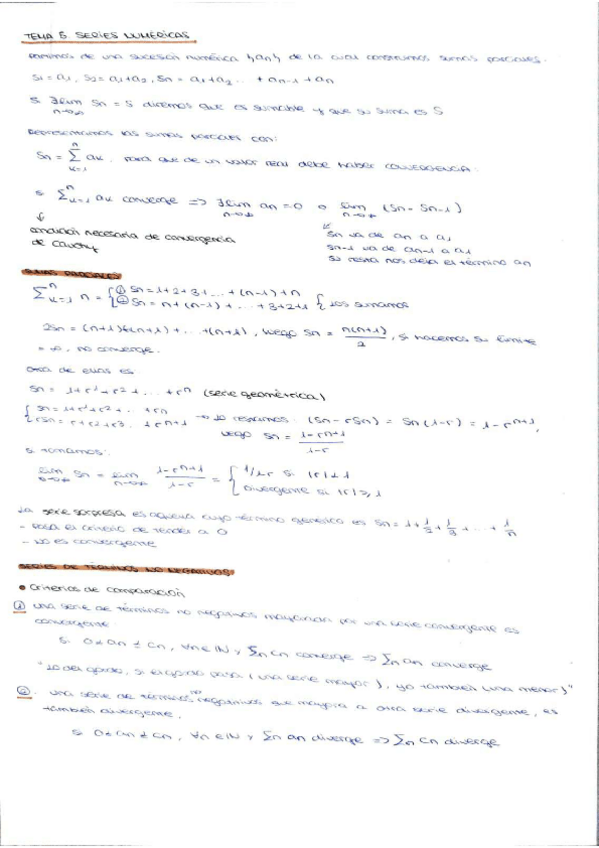 TEMA 5 SERIES NUMÉRICAS
Partimos de una sucesión numérica {an} de la cual construimos sumas parciales.
S1 = a1, S2 = a1+a2, Sn = a1+a2 ... + an-1 + an
Si ∃ lim n→∞ Sn = S diremos que es sumable y que su suma es S
Representamos las sumas parciales con:
Sn = ∑ n k=1 ak. para que de un valor real debe haber CONVERGENCIA.
Si ∑ n k=1 ak converge => ∃ lim n→∞ an = 0 o lim n→∞ (Sn - Sn-1)
condición necesaria de convergencia de Cauchy
Sn va de an a a1
Sn-1 va de an-1 a a1
Su resta nos deja el término an
SUMAS PARCIALES
∑ n k=1 n = { ① Sn = 1+2+3+...+(n-1)+n
② Sn = n+(n-1)+...+3+2+1 { los sumamos
2Sn = (n+1)+(n+1)+...+(n+1), luego Sn = n(n+1)/2, si hacemos su límite
= ∞, no converge.
Otra de ellas es
Sn = 1+r¹+r²+...+rⁿ (serie geométrica)
{ Sn = 1+r¹+r²+...rn
rSn = r+r²+r³...rⁿ⁺¹ → lo restamos: (Sn-rSn) = Sn(1-r) = 1-rⁿ⁺¹,
luego Sn = 1-rⁿ⁺¹/1-r
si tomamos:
lim n→∞ Sn = lim n→∞ 1-rⁿ⁺¹/1-r = { 1/1-r si |r|<1
divergente si |r|≥1
La serie sorpresa es aquella cuyo término genérico es Sn = 1+1/2+1/3+...+1/n
- Pasa el criterio de tender a 0
- No es convergente
SERIES DE TÉRMINOS NO NEGATIVOS:
• Criterios de comparación
① una serie de términos no negativos mayorada por una serie convergente es
convergente.
Si 0≤an≤cn, ∀n∈ℕ y ∑n cn converge => ∑n an converge
"Lo del gordo, si el gordo pasa (una serie mayor), yo también (una menor)"
②. una serie de términos no negativos que mayora a otra serie divergente, es
también divergente.
Si 0≤an≤cn, ∀n∈ℕ y ∑n an diverge => ∑n cn diverge